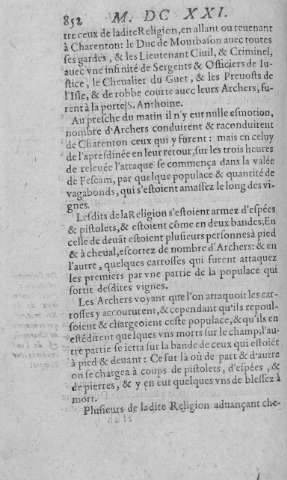 852 M. DC XXI.
tre ceux de ladite Religion, en allant ou reuenant
à Charenton: le Duc de Montbason auec toutes
ses gardes, & les Lieutenant Ciuil, & Criminel,
auec vne infinité de Sergents & Officiers de Iu-
stice, le Cheualier du Guet, & les Preuosts de
l'Isle, & de robbe courte auec leurs Archers, fu-
rent à la porte S. Anthoine.
Au presche du matin il n'y eut nulle esmotion,
nombre d'Archers conduirent & raconduirent
de Charenton ceux qui y furent; mais en celuy
de l'apresdinée en leur retour, sur les trois heures
de releuée l'attaque se commença dans la valée
de Fescam, par quelque populace & quantité de
vagabonds, qui s'estoient amassez le long des vi-
gnes.
Lesdits de la Religion s'estoient armez d'espées
& pistolets, & estoient cõme en deux bandes, En
celle de deuãt estoient plusieurs personnes à pied
& à cheual, escortez de nombre d'Archers: & en
l'autre, quelques carrosses qui furent attaquez
les premiers par vne partie de la populace qui
sortit desdites vignes.
Les Archers voyant que l'on attaquoit les car-
rosses y accoururent, & cependant qu'ils repoul-
soient & chargeoient ceste populace, & qu'ils en
estẽdirent quelques vns morts sur le champ, l'au-
tre partie se ietta sur la bande de ceux qui estoiẽt
à pied & deuant: Ce fut là où de part & d'autre
on se chargea à coups de pistolets, d'espées, &
de pierres, & y en eut quelques vns de blessez à
mort.
Plusieurs de ladite Religion aduançant che-